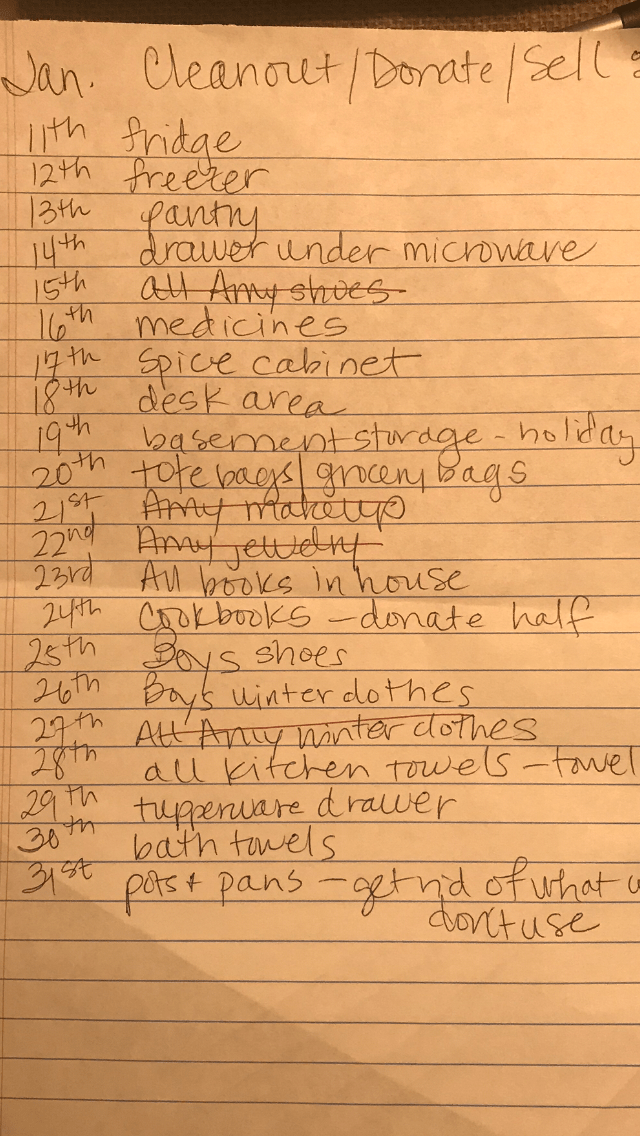 Jan. Cleanout/Donate/Sell
11th fridge
12th freezer
13th pantry
14th drawer under microwave
15th all Amy shoes
16th medicines
17th spice cabinet
18th desk area
19th basement storage - holiday
20th tote bags/grocery bags
21st Amy makeup
22nd Amy jewelry
23rd All books in house
24th Cookbooks - donate half
25th Boys shoes
26th Boys winter clothes
27th All Amy winter clothes
28th all kitchen towels - towel
29th tupperware drawer
30th bath towels
31st pots + pans - get rid of what
don't use